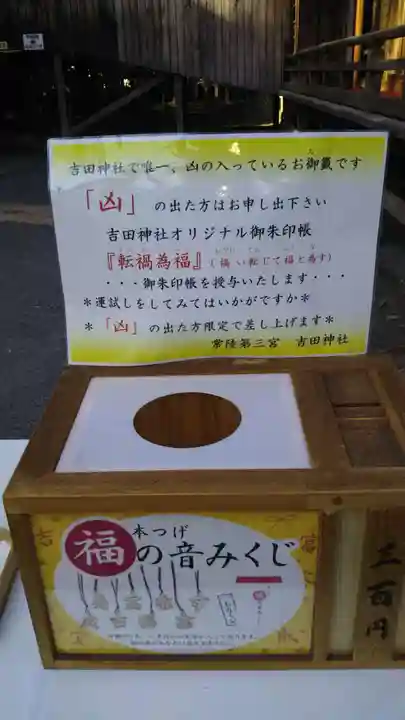 吉田神社で唯一、凶の入っているお御籤です
「凶」の出た方はお申し出下さい
吉田神社オリジナル御朱印帳
『転禍為福』(禍い転じて福と為す)
・・・御朱印帳を授与いたします・・・
＊運試しをしてみてはいかがですか＊
＊「凶」の出た方限定で差し上げます＊
常陸第三宮 吉田神社
本つげ
福の音みくじ
三百円